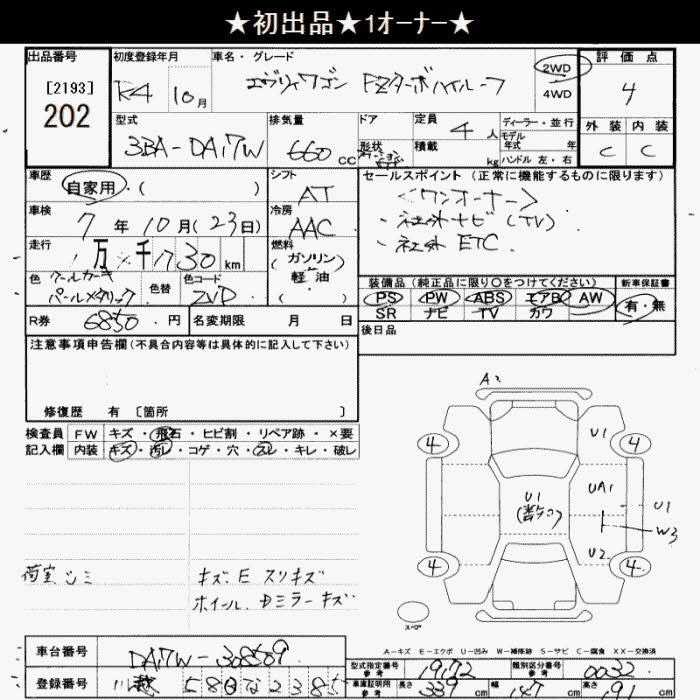 ★初出品★1オーナー★
出品番号
[2193]
202
初度登録年月
R4 10月
車名・グレード
エヴリィワゴン PZターボハイルーフ
2WD
4WD
評価点
4
外装 内装
C C
型式
3BA-DA17W
排気量
660 CC
ドア
形状
定員
4 人
積載
kg
ディーラー・並行
モデル年式 年
ハンドル 左・右
車歴
自家用・( )
シフト
AT
車検
7年10月(23日)
冷房
AAC
走行
万 千 km
燃料
(ガソリン)
軽油
( )
色
クールカーキ
パールメタリック
色替
色コード
ZVD
R券
6850.円
名変期限 月 日
セールスポイント(正常に機能するものに限ります)
<ワンオーナー>
・社外ナビ(TV)
・社外 ETC
装備品(純正品に限り○をつけてください)
新車保証書
PS PW ABS エアB AW
SR ナビ TV カワ
有・無
後日品
注意事項申告欄(不具合内容等は具体的に記入して下さい)
修復歴 有 〔箇所 〕
検査員
記入欄
FW キズ・飛石・ヒビ割・リペア跡・×要
内装 キズ・汚レ・コゲ・穴・スレ・キレ・破レ
荷室シミ
キズ.E スリキズ
ホイール.Dミラーキズ
A2
U1
4
4
UA1
U1
U1
W3
U2
4
4
スペア
A-キズ E-エクボ U-凹み W-補修跡 S-サビ C-腐食 XX-交換済
車台番号
DA17W-308509
登録番号
川越 580 な 2385
型式指定番号
参考
19172
類別区分番号
参考
0032
車庫証明用
参考
長さ 339 cm
幅 147 cm
高さ 191 cm